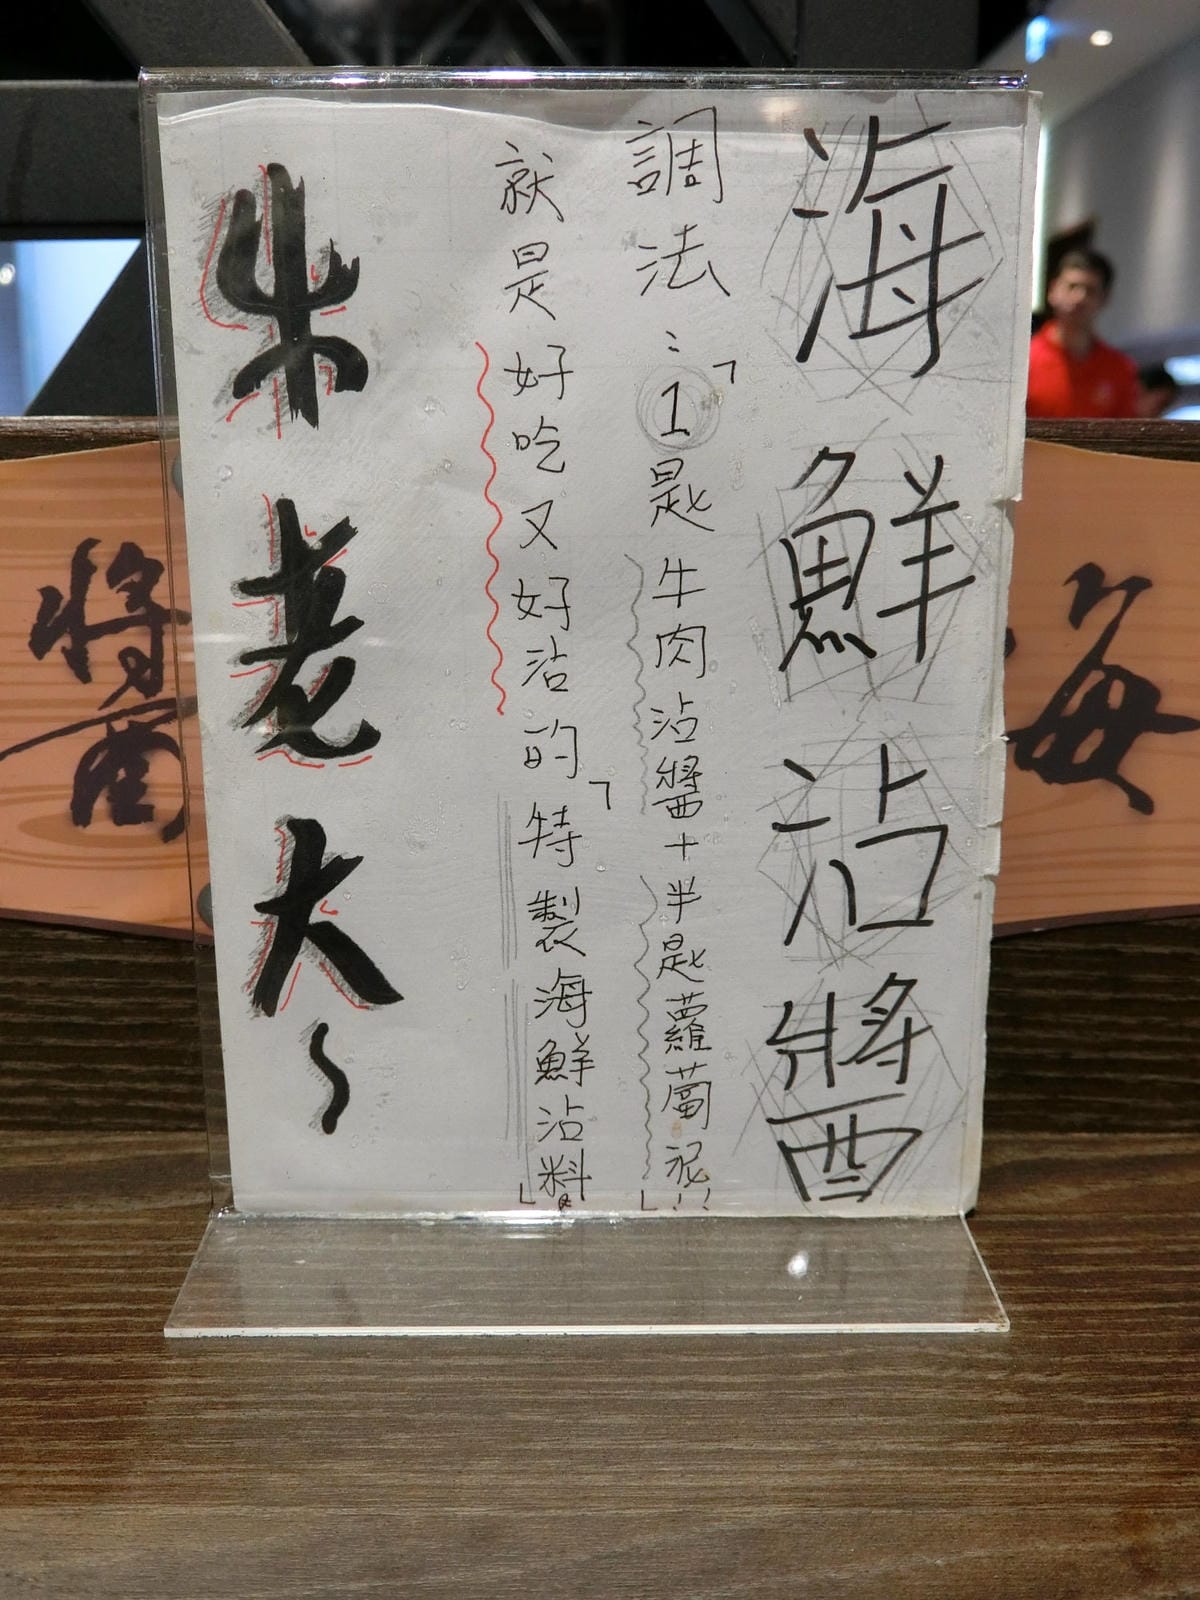 海鮮沾醬
調法：「①匙牛肉沾醬+半匙蘿蔔泥!!」
就是好吃又好沾的「特製海鮮沾料」。
牛老大~
海
醬